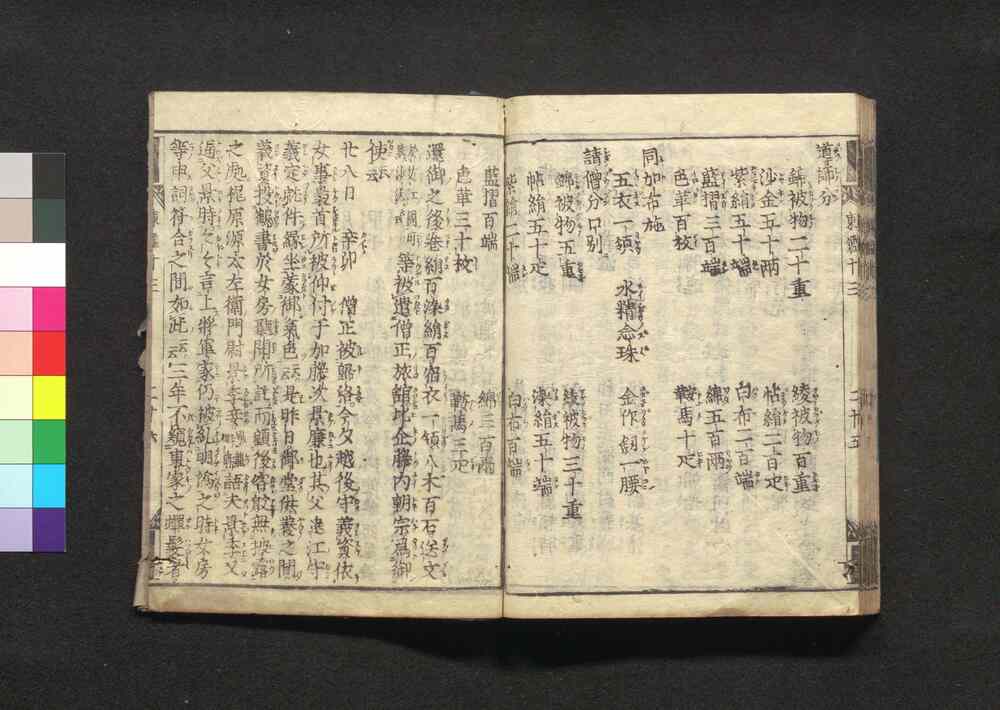 導師分
錦被物二十重
綾被物百重
沙金五十両
帖絹二百疋
紫絹五十端
白布二百端
藍摺三百端
綿五百両
色革百枚
鞍馬十疋
同加布施
五衣一領
水精念珠
金作釼一腰
請僧分口別
錦被物五重
綾被物三十重
帖絹五十疋
染絹五十端
紫絹二十端
白布百端
東鑑十三
二十五
藍摺百端
綿三百両
色革三十枚
鞍馬三疋
還御之後巻絹百染絹百宿衣一領八木百石送文
等被遣僧正旅館比企藤内朝宗為御
使云云
廿八日 辛卯 僧正被帰洛今夕越後守義資依
女事梟首所被仰付于加藤次景廉也其父遠江守
義定就件縁坐蒙御気色云云是昨日御堂供養之間
義資投艶書於女房聴聞所訖而顧後害敢無披露
之処梶原源太左衛門尉景季妾 語夫景季又
通父景時之々言上将軍家仍被糺明給之時女房
等申詞符合之間如此云云三年不窺東家之蝉髪者